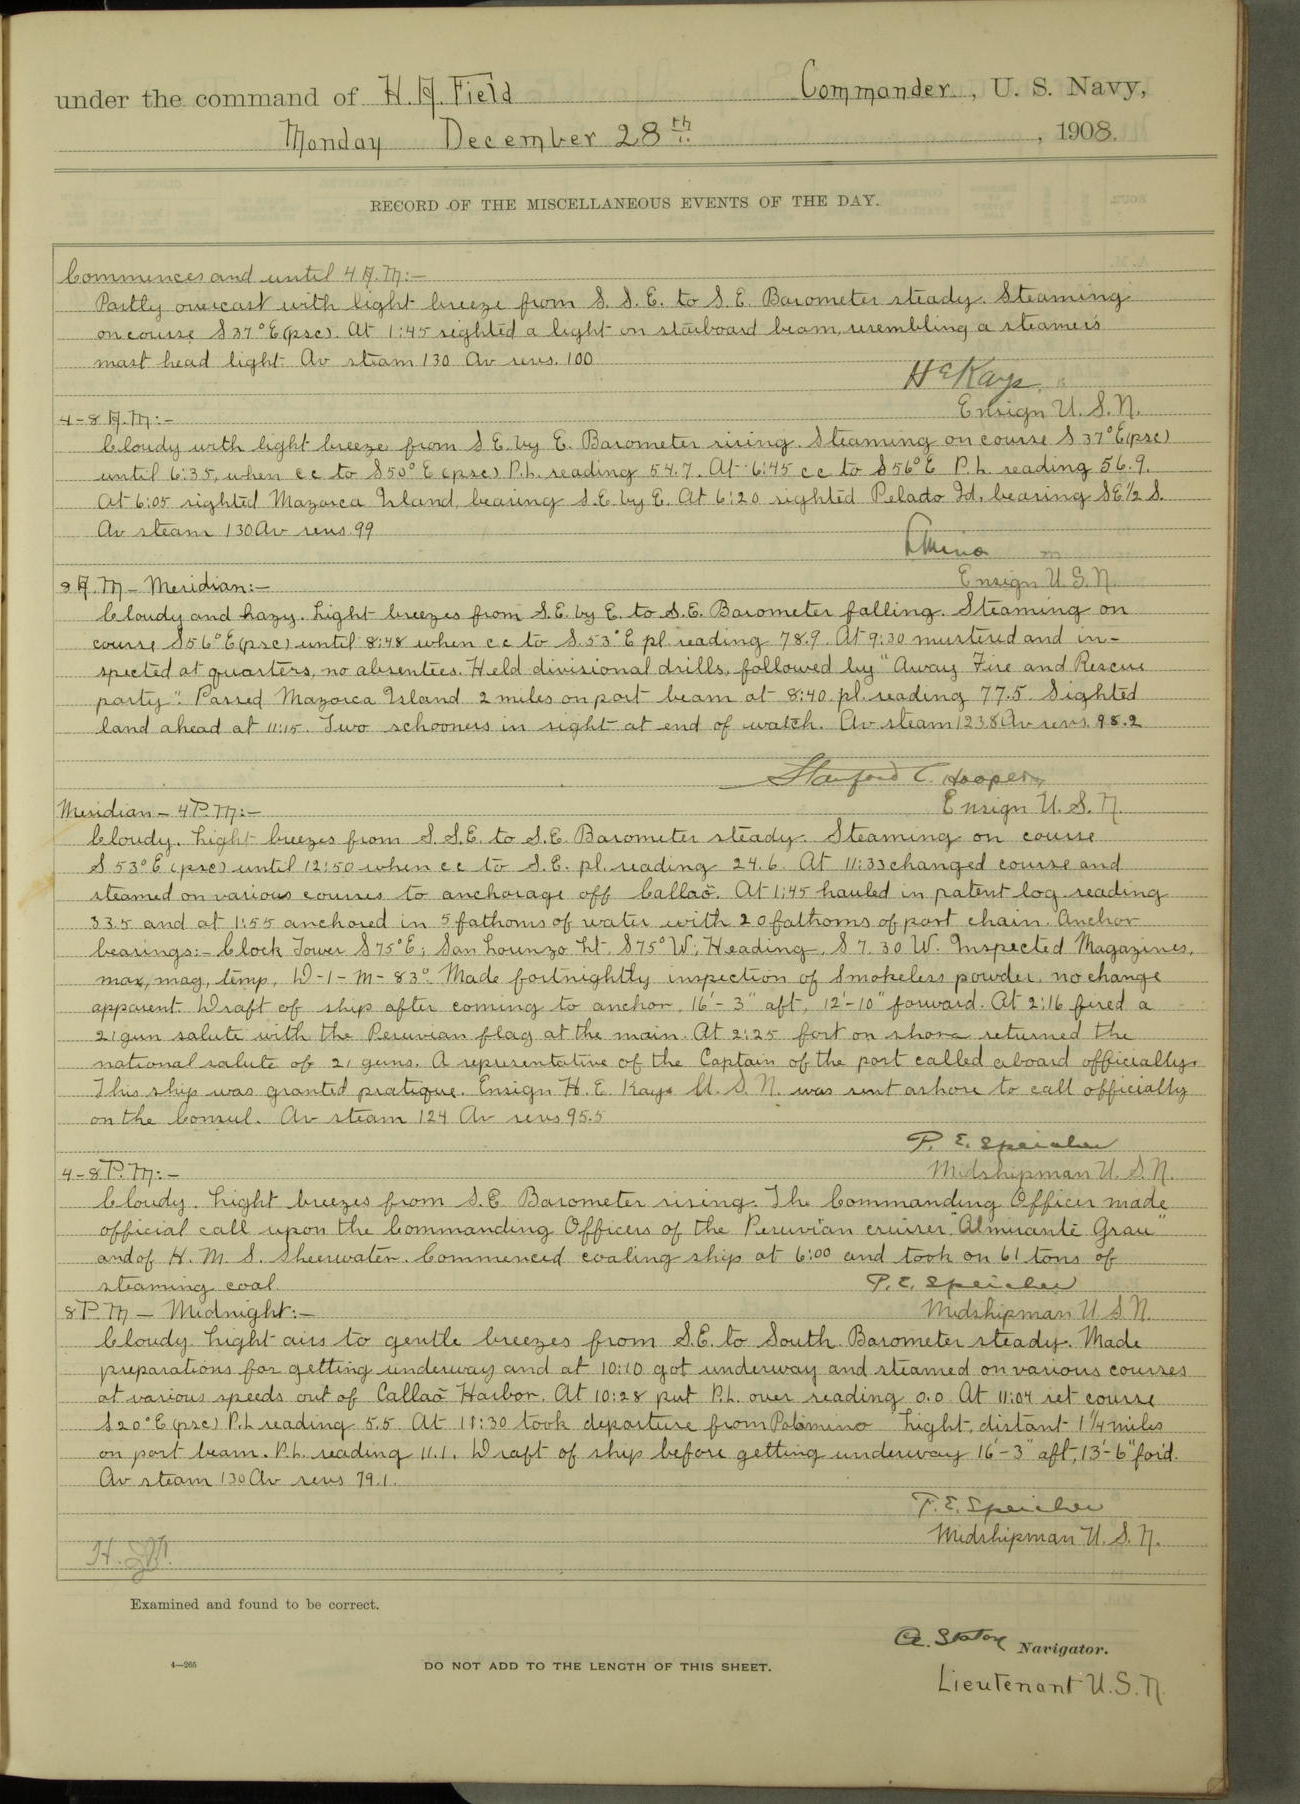 under the command of H. A. Field Commander, U. S. Navy,
Monday December 28th, 1908.
RECORD OF THE MISCELLANEOUS EVENTS OF THE DAY.
Commences and until 4 A.M:-
Partly overcast with light breeze from S. S. E. to S. E. Barometer steady. Steaming
on course S 37° E (psc). At 1:45 sighted a light on starboard beam, resembling a steamer's
mast head light. Av steam 130 Av revs. 100
H E Kays
Ensign U. S. N.
4-8 A.M:-
Cloudy with light breeze from S E. by E. Barometer rising. Steaming on course S 37° E (psc)
until 6:35, when cc to S 50° E (psc) P.L. reading 54.7. At 6:45 cc to S 56° E P. L. reading 56.9.
At 6:05 sighted Mazorca Island, bearing S.E. by E. At 6:20 sighted Pelado Id. bearing SE 1/2 S.
Av steam 130 Av revs. 99
Ensign U. S. N.
8 A. M - Meridian:-
Cloudy and hazy. Light breezes from S.E. by E. to S.E. Barometer falling. Steaming on
course S 56° E (psc) until 8:48 when cc to S. 53° E pl. reading 78.9. At 9:30 mustered and in-
spected at quarters, no absentees. Held divisional drills, followed by "Away Fire and Rescue
party". Passed Mazorca Island 2 miles on port beam at 8:40 pl. reading 77.5. Sighted
land ahead at 11:15. Two schooners in sight at end of watch. Av steam 123.8 Av revs. 98.2
Stanford C. Hooper
Ensign U. S. N.
Meridian - 4 P. M:-
Cloudy. Light breezes from S. S.E. to S.E. Barometer steady. Steaming on course
S 53° E (psc) until 12:50 when cc to S.E. pl. reading 24.6. At 11:33 changed course and
steamed on various courses to anchorage off Callao. At 1:45 hauled in patent log reading
33.5 and at 1:55 anchored in 5 fathoms of water with 20 fathoms of port chain. Anchor
bearings:- Clock Tower S 75° E; San Lorenzo Lt. S 75° W; Heading, S 7. 30 W. Inspected Magazines,
max, mag, temp, D-1-M- 83°. Made fortnightly inspection of smokeless powder, no change
apparent. Draft of ship after coming to anchor, 16'-3" aft, 12'-10" forward. At 2:16 fired a
21 gun salute with the Peruvian flag at the main. At 2:25 fort on shore returned the
national salute of 21 guns. A representative of the Captain of the port called aboard officially.
This ship was granted pratique. Ensign H. E. Kays U. S. N. was sent ashore to call officially
on the Consul. Av steam 124 Av revs 95.5
P. E. Speicher
Midshipman U. S. N.
4-8 P. M:-
Cloudy. Light breezes from S.E. Barometer rising. The Commanding Officer made
official call upon the Commanding Officers of the Peruvian cruiser "Almirante Grau"
and of H. M. S. Sheerwater. Commenced coaling ship at 6:00 and took on 61 tons of
steaming coal.
P. E. Speicher
Midshipman U. S. N.
8 P. M - Midnight:-
Cloudy. Light airs to gentle breezes from S.E. to South. Barometer steady. Made
preparations for getting underway and at 10:10 got underway and steamed on various courses
at various speeds out of Callao Harbor. At 10:28 put P.L. over reading 0.0 At 11:04 set course
S 20° E (psc) P. L reading 5.5. At 11:30 took departure from Palomino Light, distant 1 1/4 miles
on port beam. P. L. reading 11.1. Draft of ship before getting underway 16'-3" aft, 13'-6" for'd.
Av steam 130 Av revs 79.1.
P. E. Speicher
Midshipman U. S. N.
Examined and found to be correct.
Navigator.
4—265
DO NOT ADD TO THE LENGTH OF THIS SHEET.
Lieutenant U. S. N.